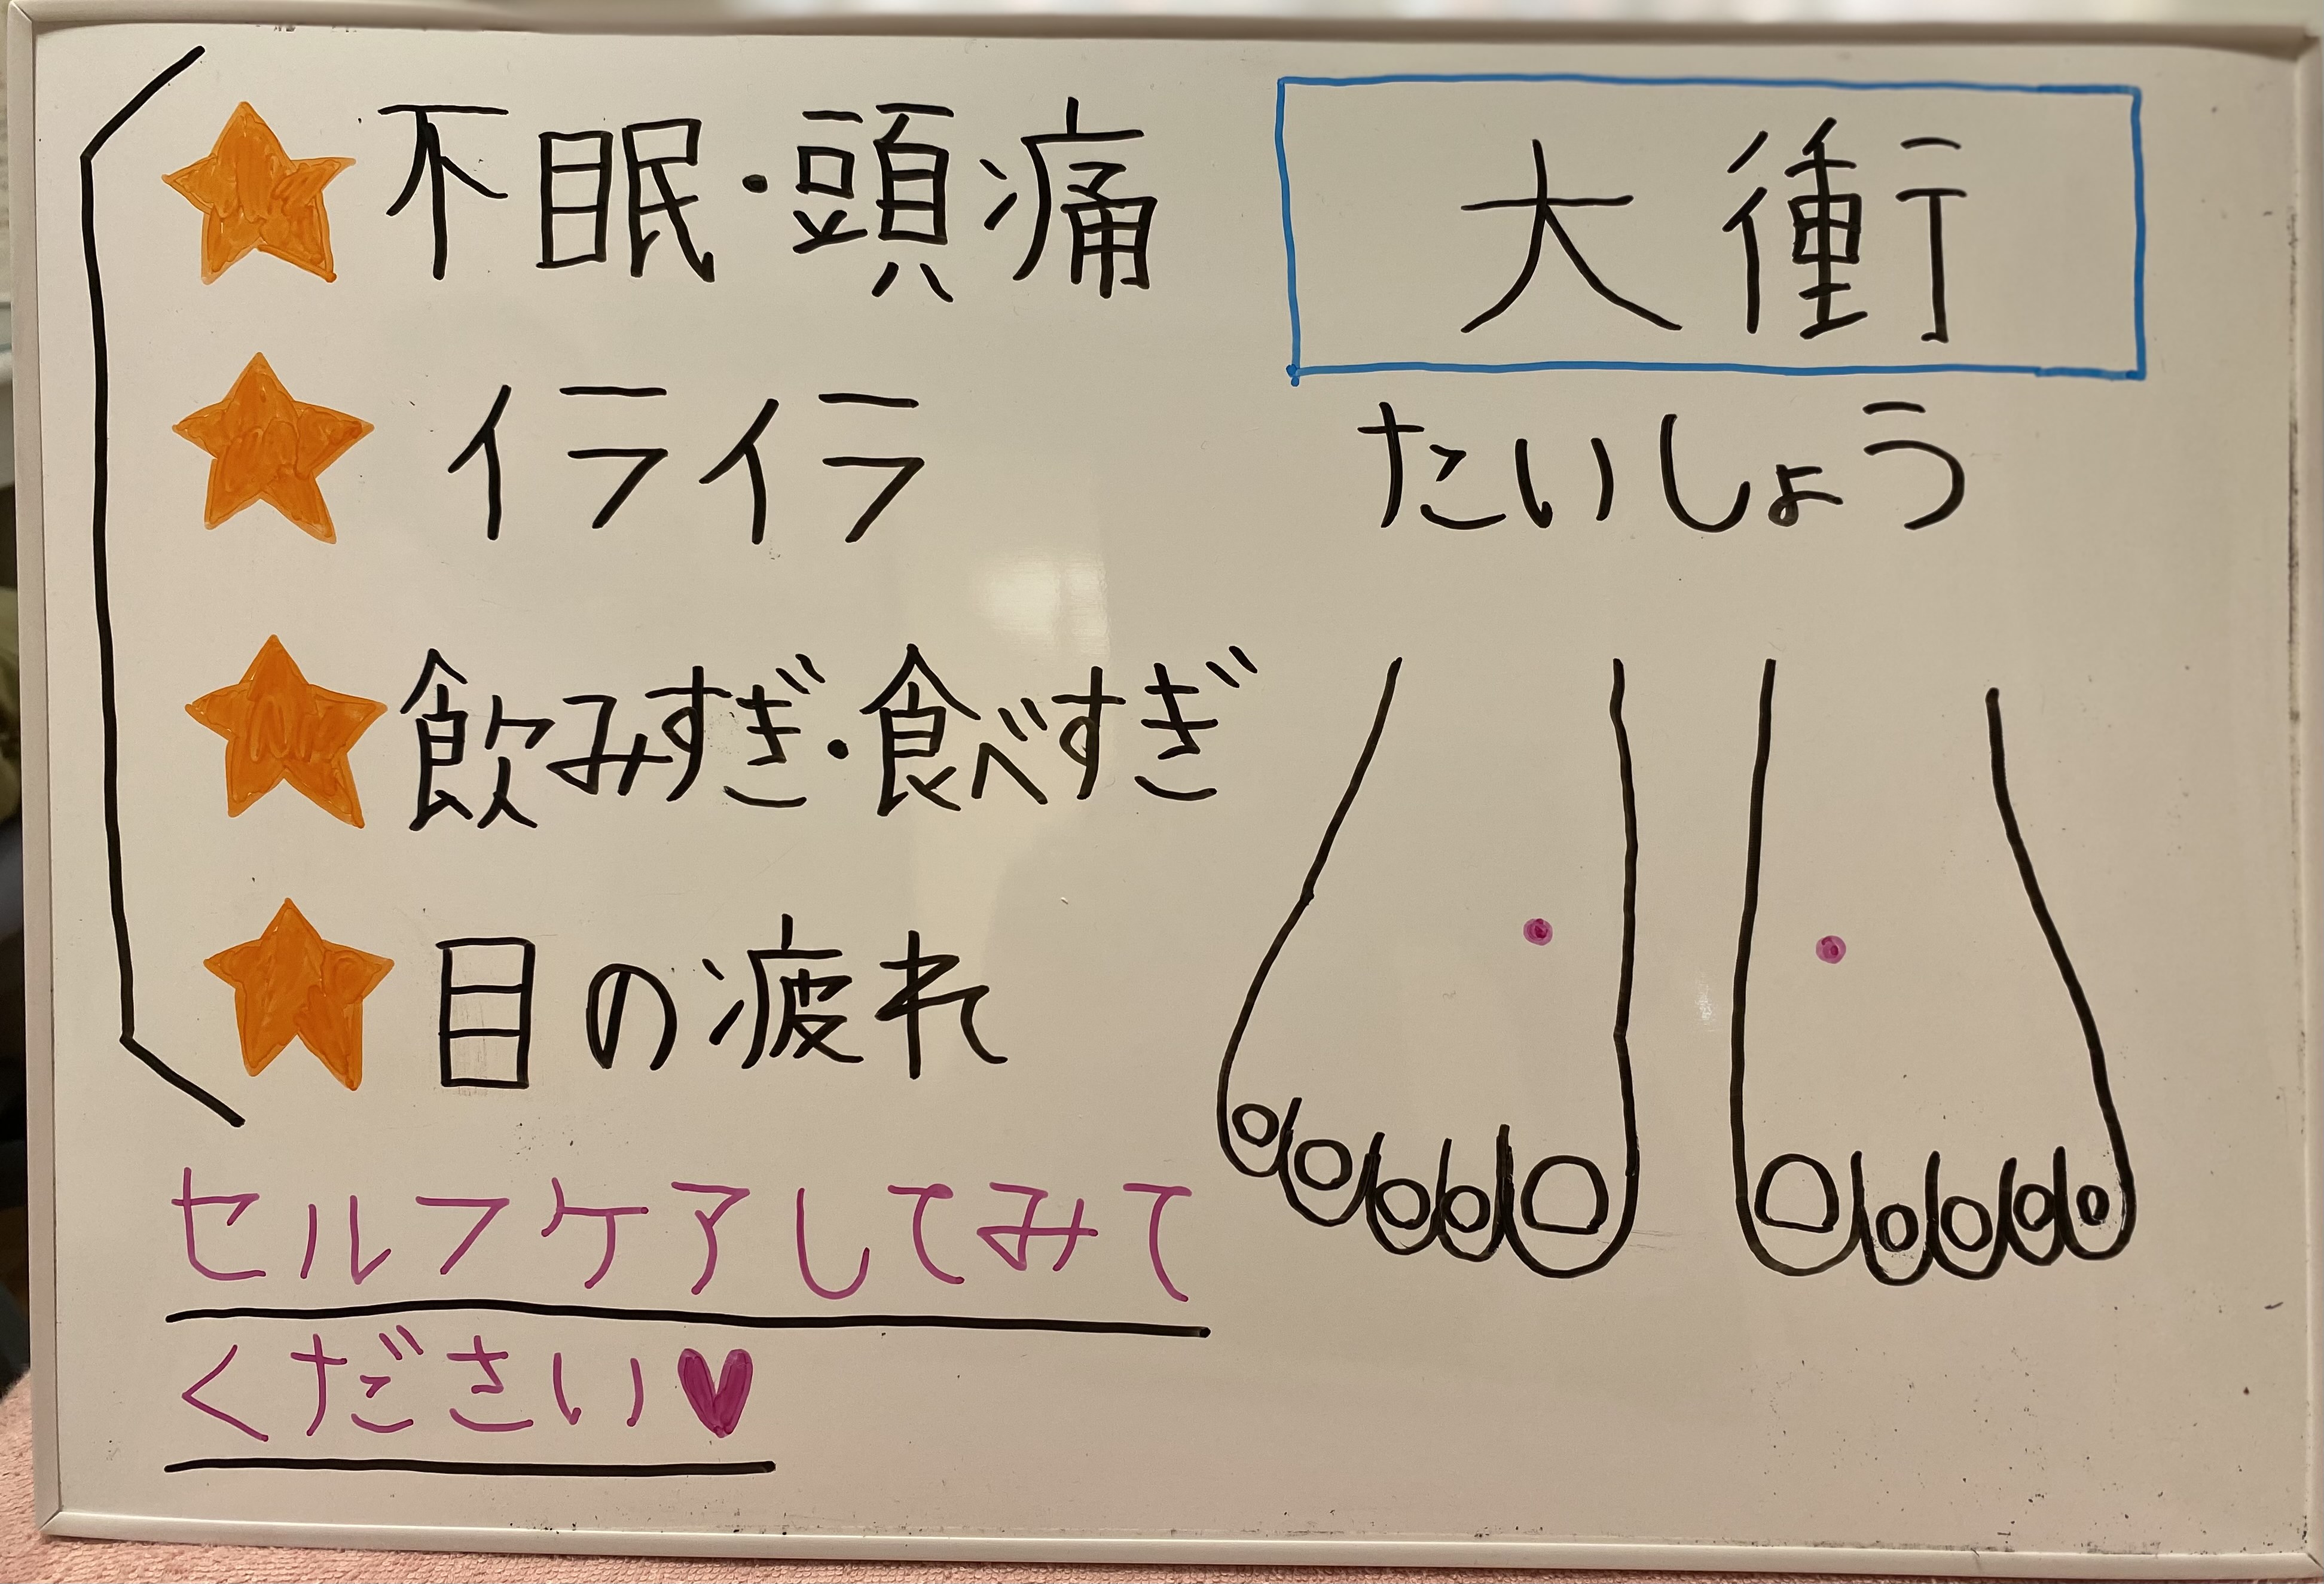 大衝
たいしょう
不眠・頭痛
イライラ
飲みすぎ・食べすぎ
目の疲れ
セルフケアしてみて
ください♥